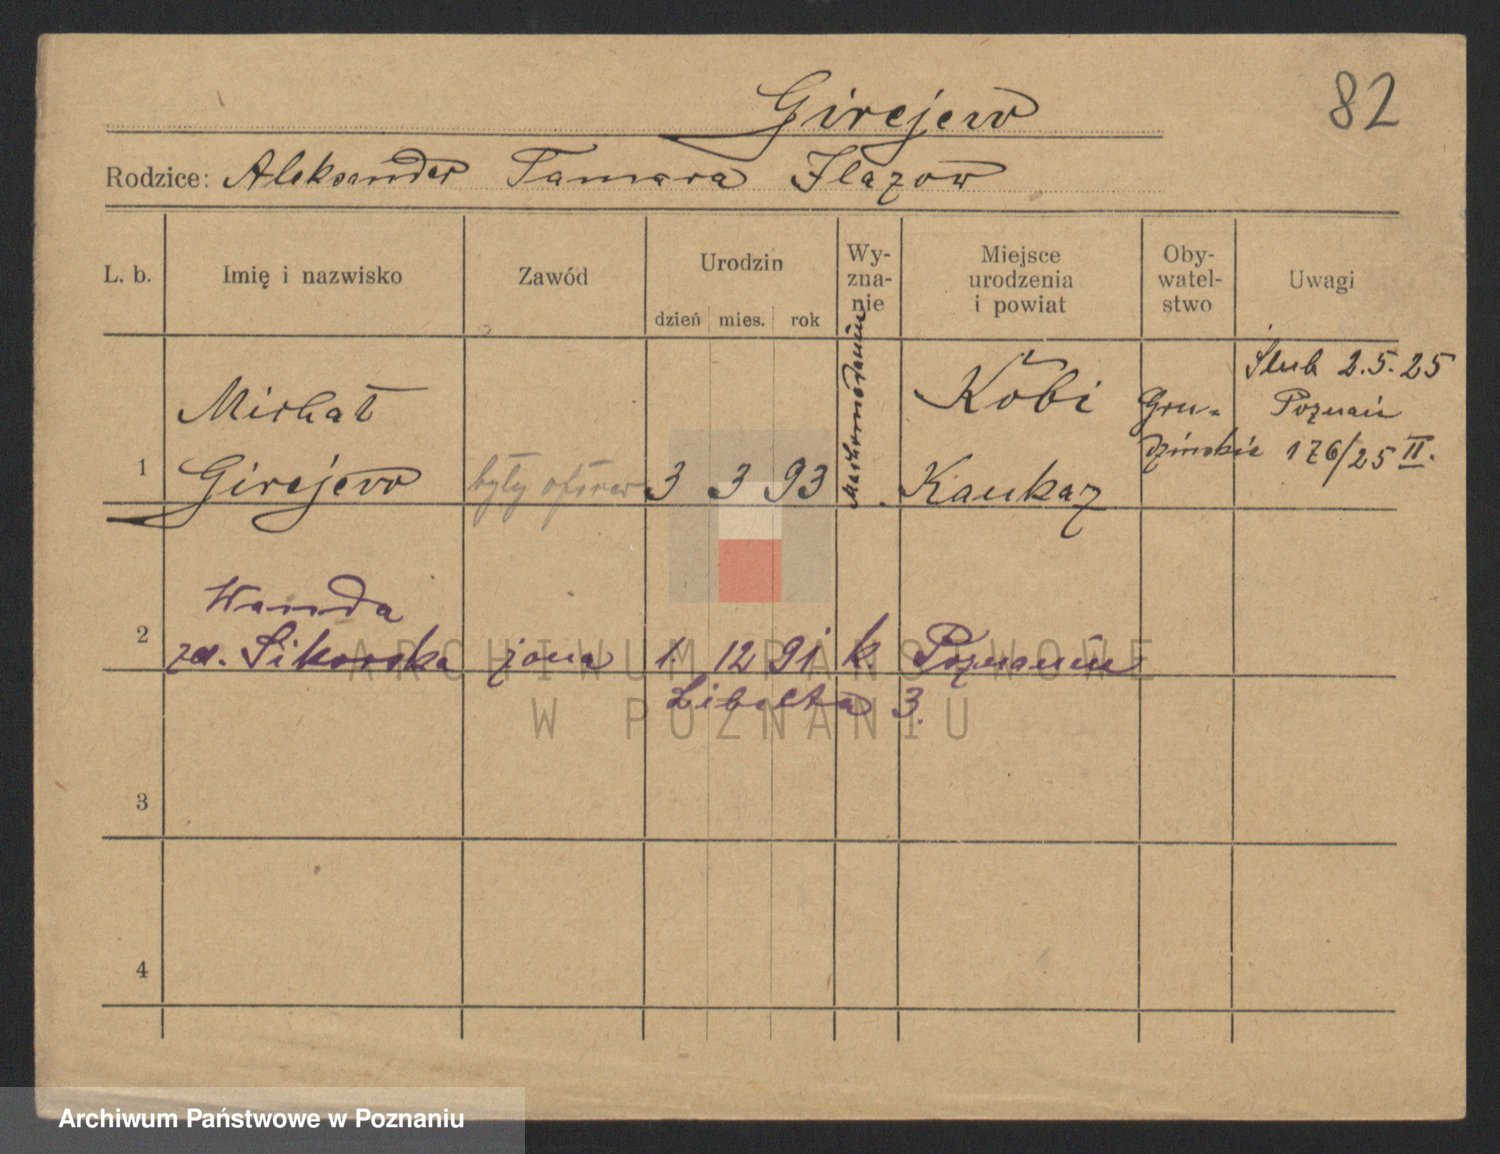 Girejew
82
Rodzice: Aleksander Tamara Ilazow
L. b.
Imię i nazwisko
Zawód
Urodzin
dzień mies. rok
Wy-
zna-
nie
Miejsce
urodzenia
i powiat
Oby-
watel-
stwo
Uwagi
1
Michał
Girejew
były oficer
3 3 93
Kobi
Kaukaz
Gru-
zińskie
Ślub 2.5.25
Poznań
176/25 II.
2
Wanda
zd. Sikorska
żona
1. 12 91
k.
Poznaniu
Libelta 3.
3
4
ARCHIWUM PAŃSTWOWE
W POZNANIU
Archiwum Państwowe w Poznaniu